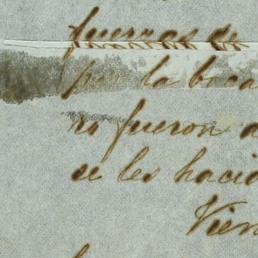 fuerzas de
por la boca
ra fueron a
se les hacia
Vien